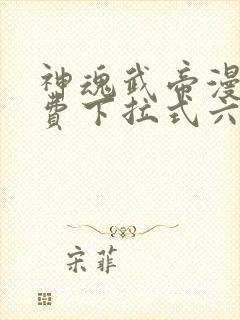 神魂武帝漫
费下拉式六
宋菲